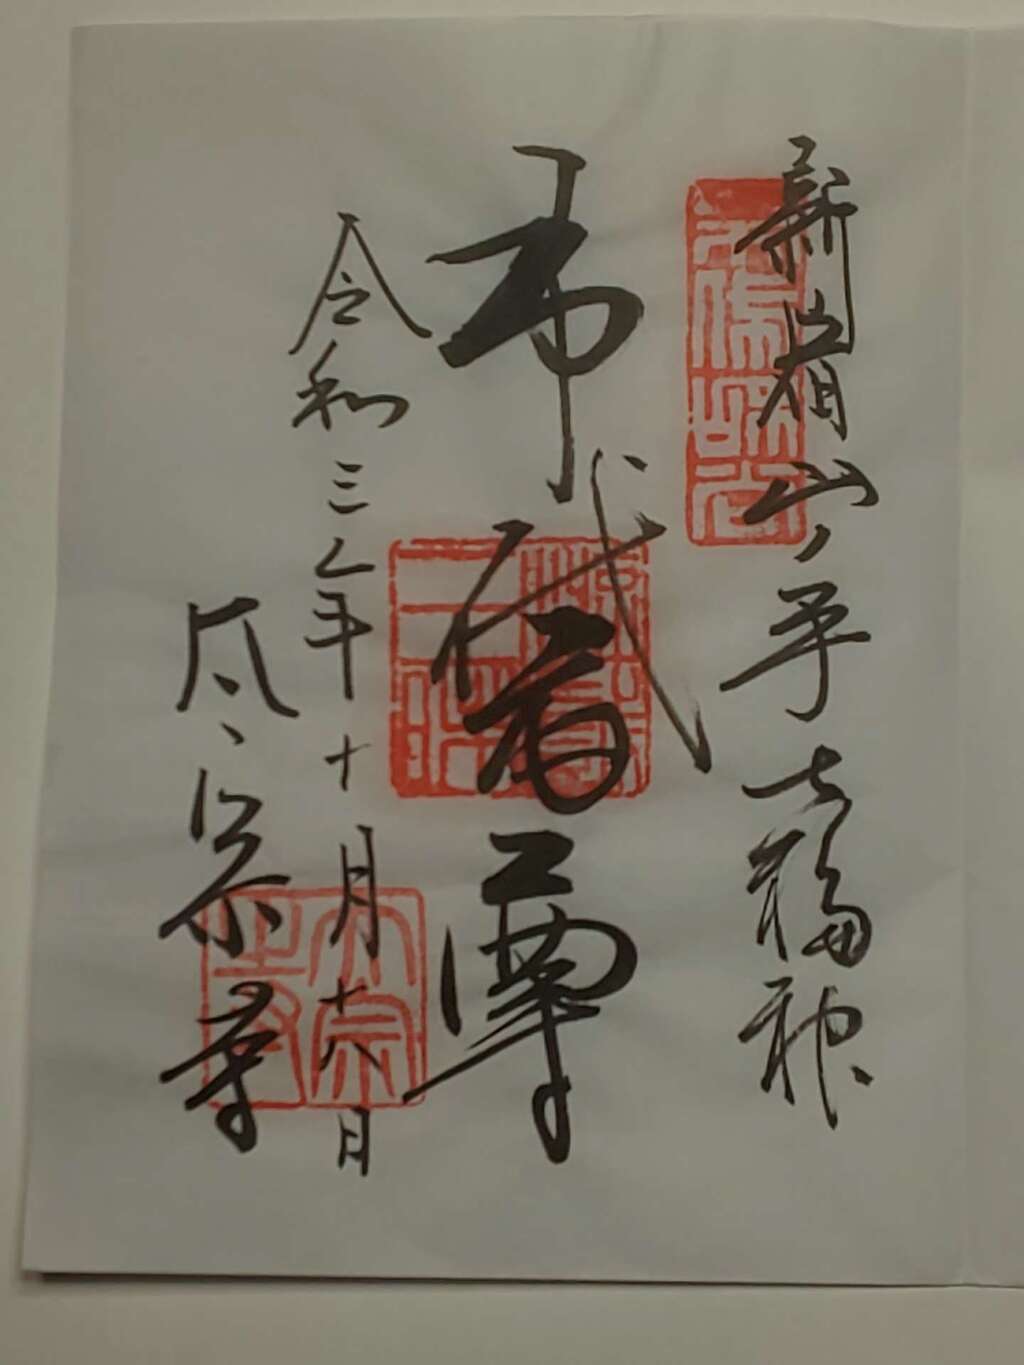 新宿山ノ手七福神
布袋尊
令和三年十月十八日
太宗寺